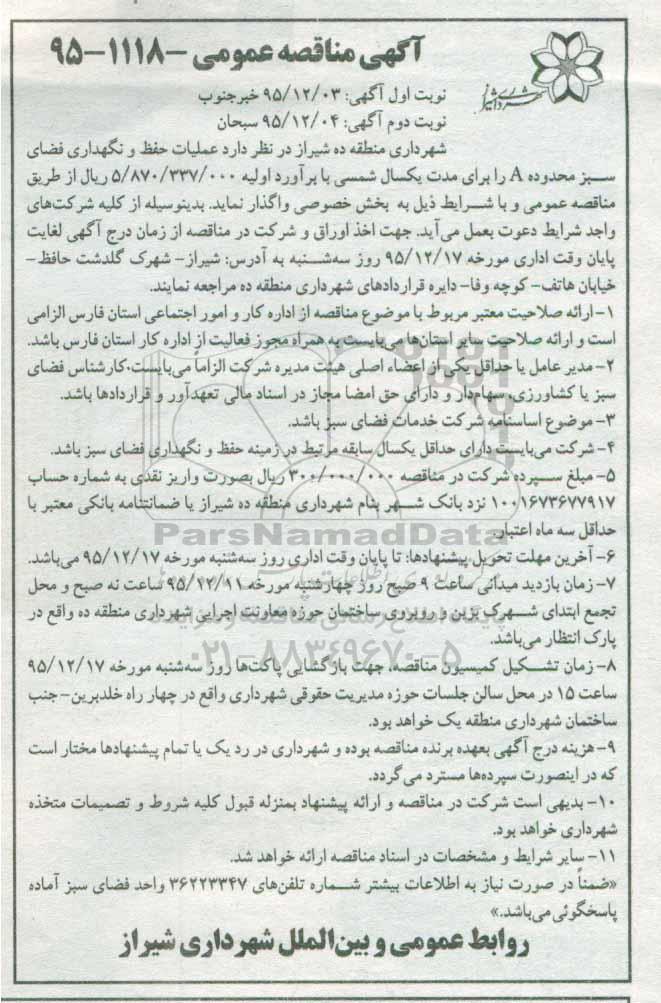 آگهی مناقصه عمومی -۱۱۱۸-۹۵
شهرداری شیراز
نوبت اول آگهی: ۹۵/۱۲/۰۳ خبرجنوب
نوبت دوم آگهی: ۹۵/۱۲/۰۴ سبحان
شهرداری منطقه ده شیراز در نظر دارد عملیات حفظ و نگهداری فضای
سبز محدوده A را برای مدت یکسال شمسی با برآورد اولیه ۵/۸۷۰/۳۳۷/۰۰۰ ریال از طریق
مناقصه عمومی و با شرایط ذیل به بخش خصوصی واگذار نماید. بدینوسیله از کلیه شرکت‌های
واجد شرایط دعوت بعمل می‌آید. جهت اخذ اوراق و شرکت در مناقصه از زمان درج آگهی لغایت
پایان وقت اداری مورخه ۹۵/۱۲/۱۷ روز سه‌شنبه به آدرس: شیراز- شهرک گلدشت حافظ-
خیابان هاتف- کوچه وفا- دایره قراردادهای شهرداری منطقه ده مراجعه نمایند.
۱- ارائه صلاحیت معتبر مربوط با موضوع مناقصه از اداره کار و امور اجتماعی استان فارس الزامی
است و ارائه صلاحیت سایر استان‌ها می‌بایست به همراه مجوز فعالیت از اداره کار استان فارس باشد.
۲- مدیر عامل یا حداقل یکی از اعضاء اصلی هیئت مدیره شرکت الزاماً می‌بایست کارشناس فضای
سبز یا کشاورزی، سهام‌دار و دارای حق امضا مجاز در اسناد مالی تعهدآور و قراردادها باشد.
۳- موضوع اساسنامه شرکت خدمات فضای سبز باشد.
۴- شرکت می‌بایست دارای حداقل یکسال سابقه مرتبط در زمینه حفظ و نگهداری فضای سبز باشد.
۵- مبلغ سپرده شرکت در مناقصه ۳۰۰/۰۰۰/۰۰۰ ریال بصورت واریز نقدی به شماره حساب
۱۰۰۱۶۷۳۶۷۷۹۱۷ نزد بانک شهر بنام شهرداری منطقه ده شیراز یا ضمانتنامه بانکی معتبر با
حداقل سه ماه اعتبار.
ParsNamadData
۶- آخرین مهلت تحویل پیشنهادها: تا پایان وقت اداری روز سه‌شنبه مورخه ۹۵/۱۲/۱۷ می‌باشد.
۷- زمان بازدید میدانی ساعت ۹ صبح روز چهارشنبه مورخه ۹۵/۱۲/۱۱ ساعت نه صبح و محل
تجمع ابتدای شهرک بزین و روبروی ساختمان حوزه معاونت اجرایی شهرداری منطقه ده واقع در
پارک انتظار می‌باشد.
۰۲۱-۸۸۳۴۹۶۷۰-۵
۸- زمان تشکیل کمیسیون مناقصه، جهت بازگشایی پاکت‌ها روز سه‌شنبه مورخه ۹۵/۱۲/۱۷
ساعت ۱۵ در محل سالن جلسات حوزه مدیریت حقوقی شهرداری واقع در چهار راه خلدبرین- جنب
ساختمان شهرداری منطقه یک خواهد بود.
۹- هزینه درج آگهی بعهده برنده مناقصه بوده و شهرداری در رد یک یا تمام پیشنهادها مختار است
که در اینصورت سپرده‌ها مسترد می‌گردد.
۱۰- بدیهی است شرکت در مناقصه و ارائه پیشنهاد بمنزله قبول کلیه شروط و تصمیمات متخذه
شهرداری خواهد بود.
۱۱- سایر شرایط و مشخصات در اسناد مناقصه ارائه خواهد شد.
«ضمناً در صورت نیاز به اطلاعات بیشتر شماره تلفن‌های ۳۶۲۲۳۳۴۷ واحد فضای سبز آماده
پاسخگوئی می‌باشد.»
روابط عمومی و بین‌الملل شهرداری شیراز